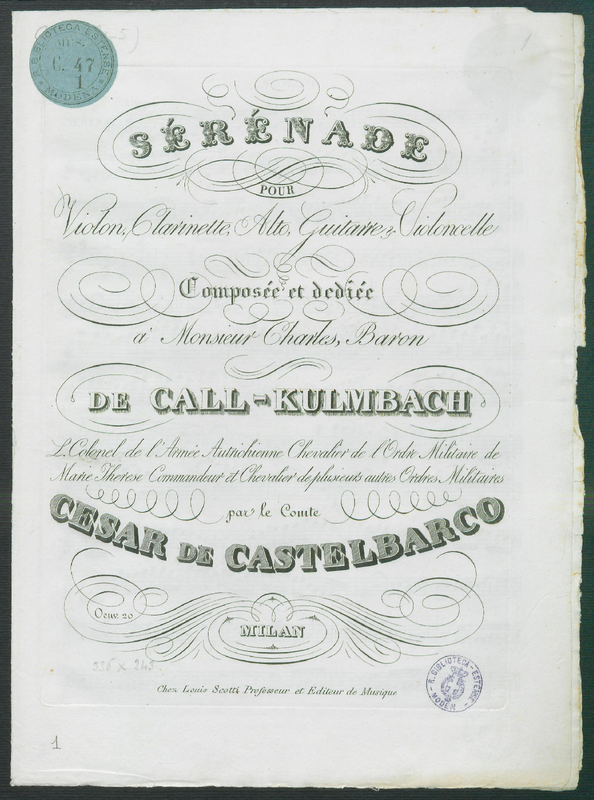 R. BIBLIOTECA ESTENSE
MUS.
G. 47
1
MODENA
1
SÉRÉNADE
POUR
Violon, Clarinette, Alto, Guitarre & Violoncelle
Composée et dediée
a Monsieur Charles, Baron
DE CALL-KULMBACH
L. Colonel de l'Armée Autrichienne Chevalier de l'Ordre Militaire de
Marie Therese Commandeur et Chevalier de plusieurs autres Ordres Militaires
par le Comte
CESAR DE CASTELBARCO
Oeuv. 20
MILAN
336 x 245
Chez Louis Scotti Professeur et Editeur de Musique
R. BIBLIOTECA ESTENSE
MODEN
1